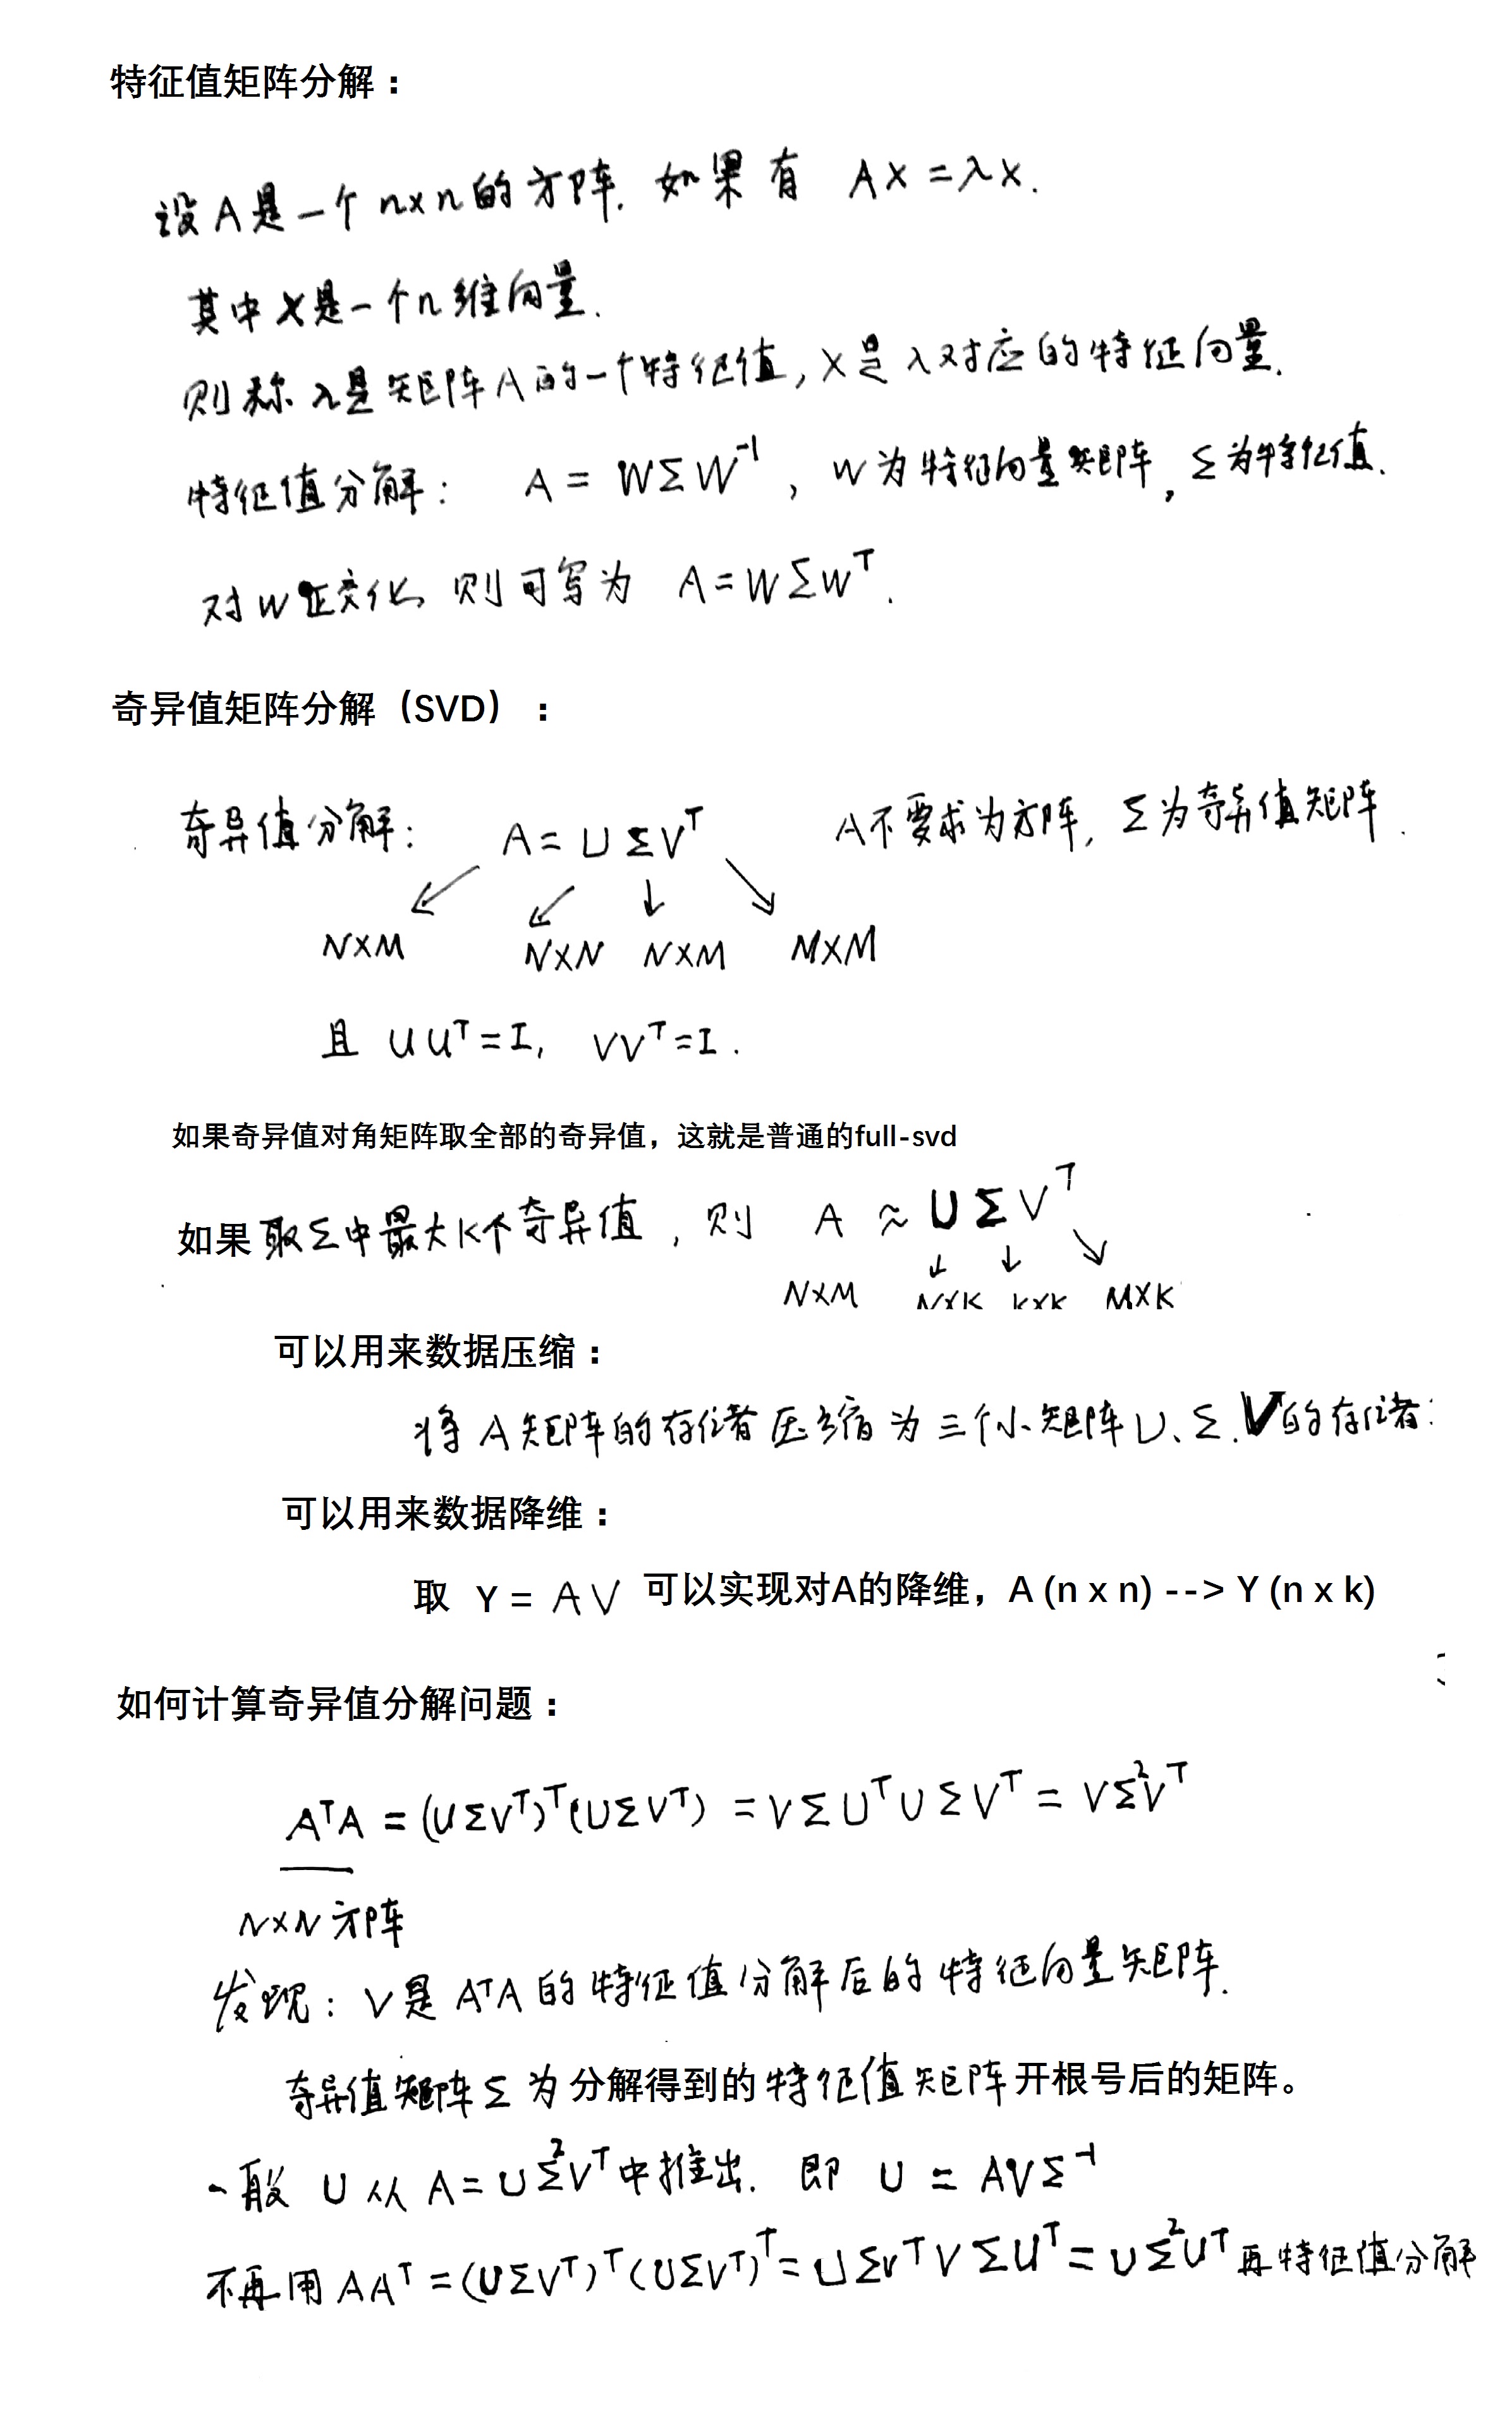 特征值矩阵分解：
设A是一个n×n的方阵. 如果有 AX=λX.
其中X是一个n维向量.
则称λ是矩阵A的一个特征值, X是λ对应的特征向量.
特征值分解: A = WΣW⁻¹, W为特征向量矩阵, Σ为特征值.
对W正交化, 则可写为 A=WΣWᵀ.
奇异值矩阵分解（SVD）：
奇异值分解: A= UΣVᵀ A不要求为方阵, Σ为奇异值矩阵.
N×M N×N N×M M×M
且 UUᵀ=I, VVᵀ=I.
如果奇异值对角矩阵取全部的奇异值，这就是普通的full-svd
如果取Σ中最大K个奇异值, 则 A ≈ UΣVᵀ
N×M N×K K×K M×K
可以用来数据压缩：
将A矩阵的存储压缩为三个小矩阵U、Σ.V的存储
可以用来数据降维：
取 Y = AV 可以实现对A的降维，A (n x n) --> Y (n x k)
如何计算奇异值分解问题：
AᵀA = (UΣVᵀ)ᵀ(UΣVᵀ) = VΣUᵀUΣVᵀ = VΣ²Vᵀ
N×N方阵
发现: V是AᵀA的特征值分解后的特征向量矩阵.
奇异值矩阵Σ为分解得到的特征值矩阵开根号后的矩阵。
一般 U从A=UΣ²Vᵀ中推出. 即 U = AVΣ⁻¹
不再用AAᵀ=(UΣVᵀ)ᵀ(UΣVᵀ)ᵀ=UΣVᵀVΣUᵀ=UΣ²Uᵀ再特征值分解